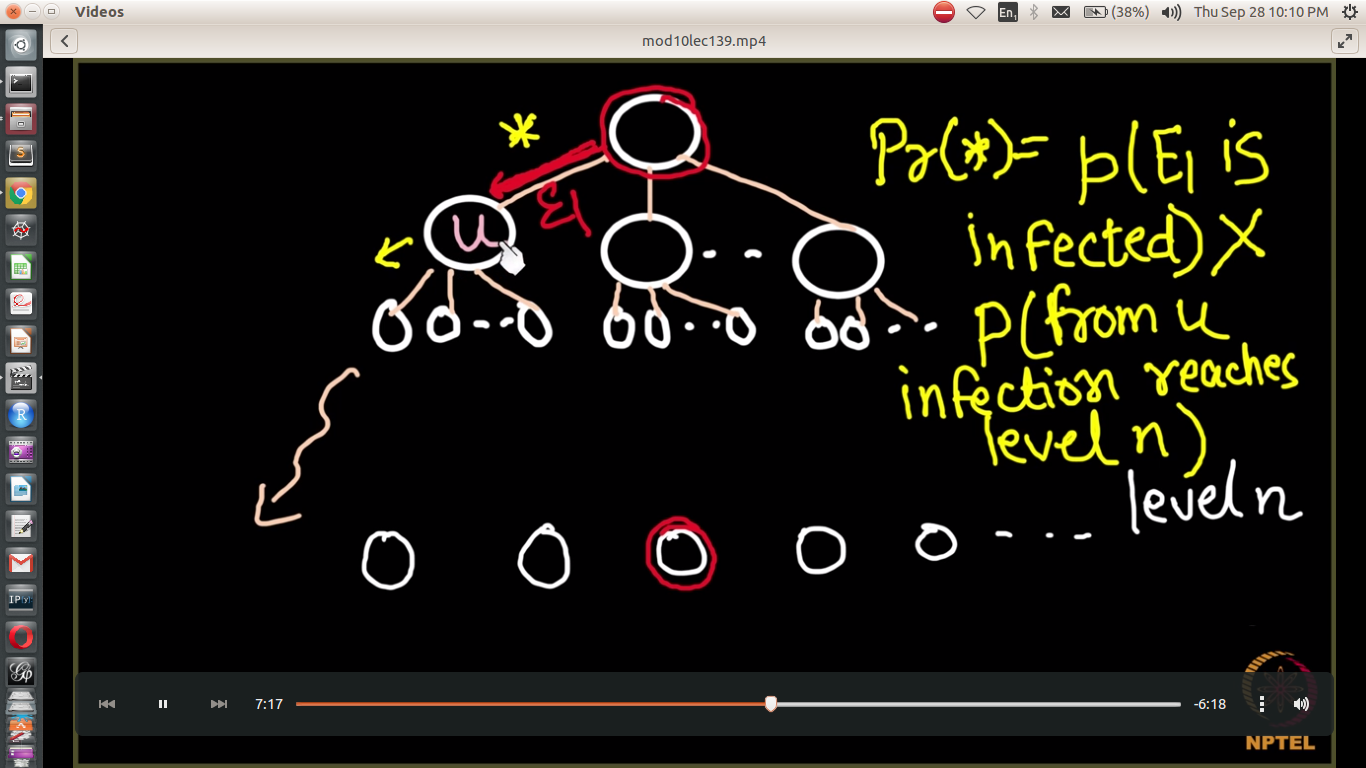 Videos
En1
(38%)
Thu Sep 28 10:10 PM
mod10lec139.mp4
*
E1
u
Pr(*)= p(E1 is
infected) X
p(from u
infection reaches
level n)
level n
7:17
-6:18
NPTEL